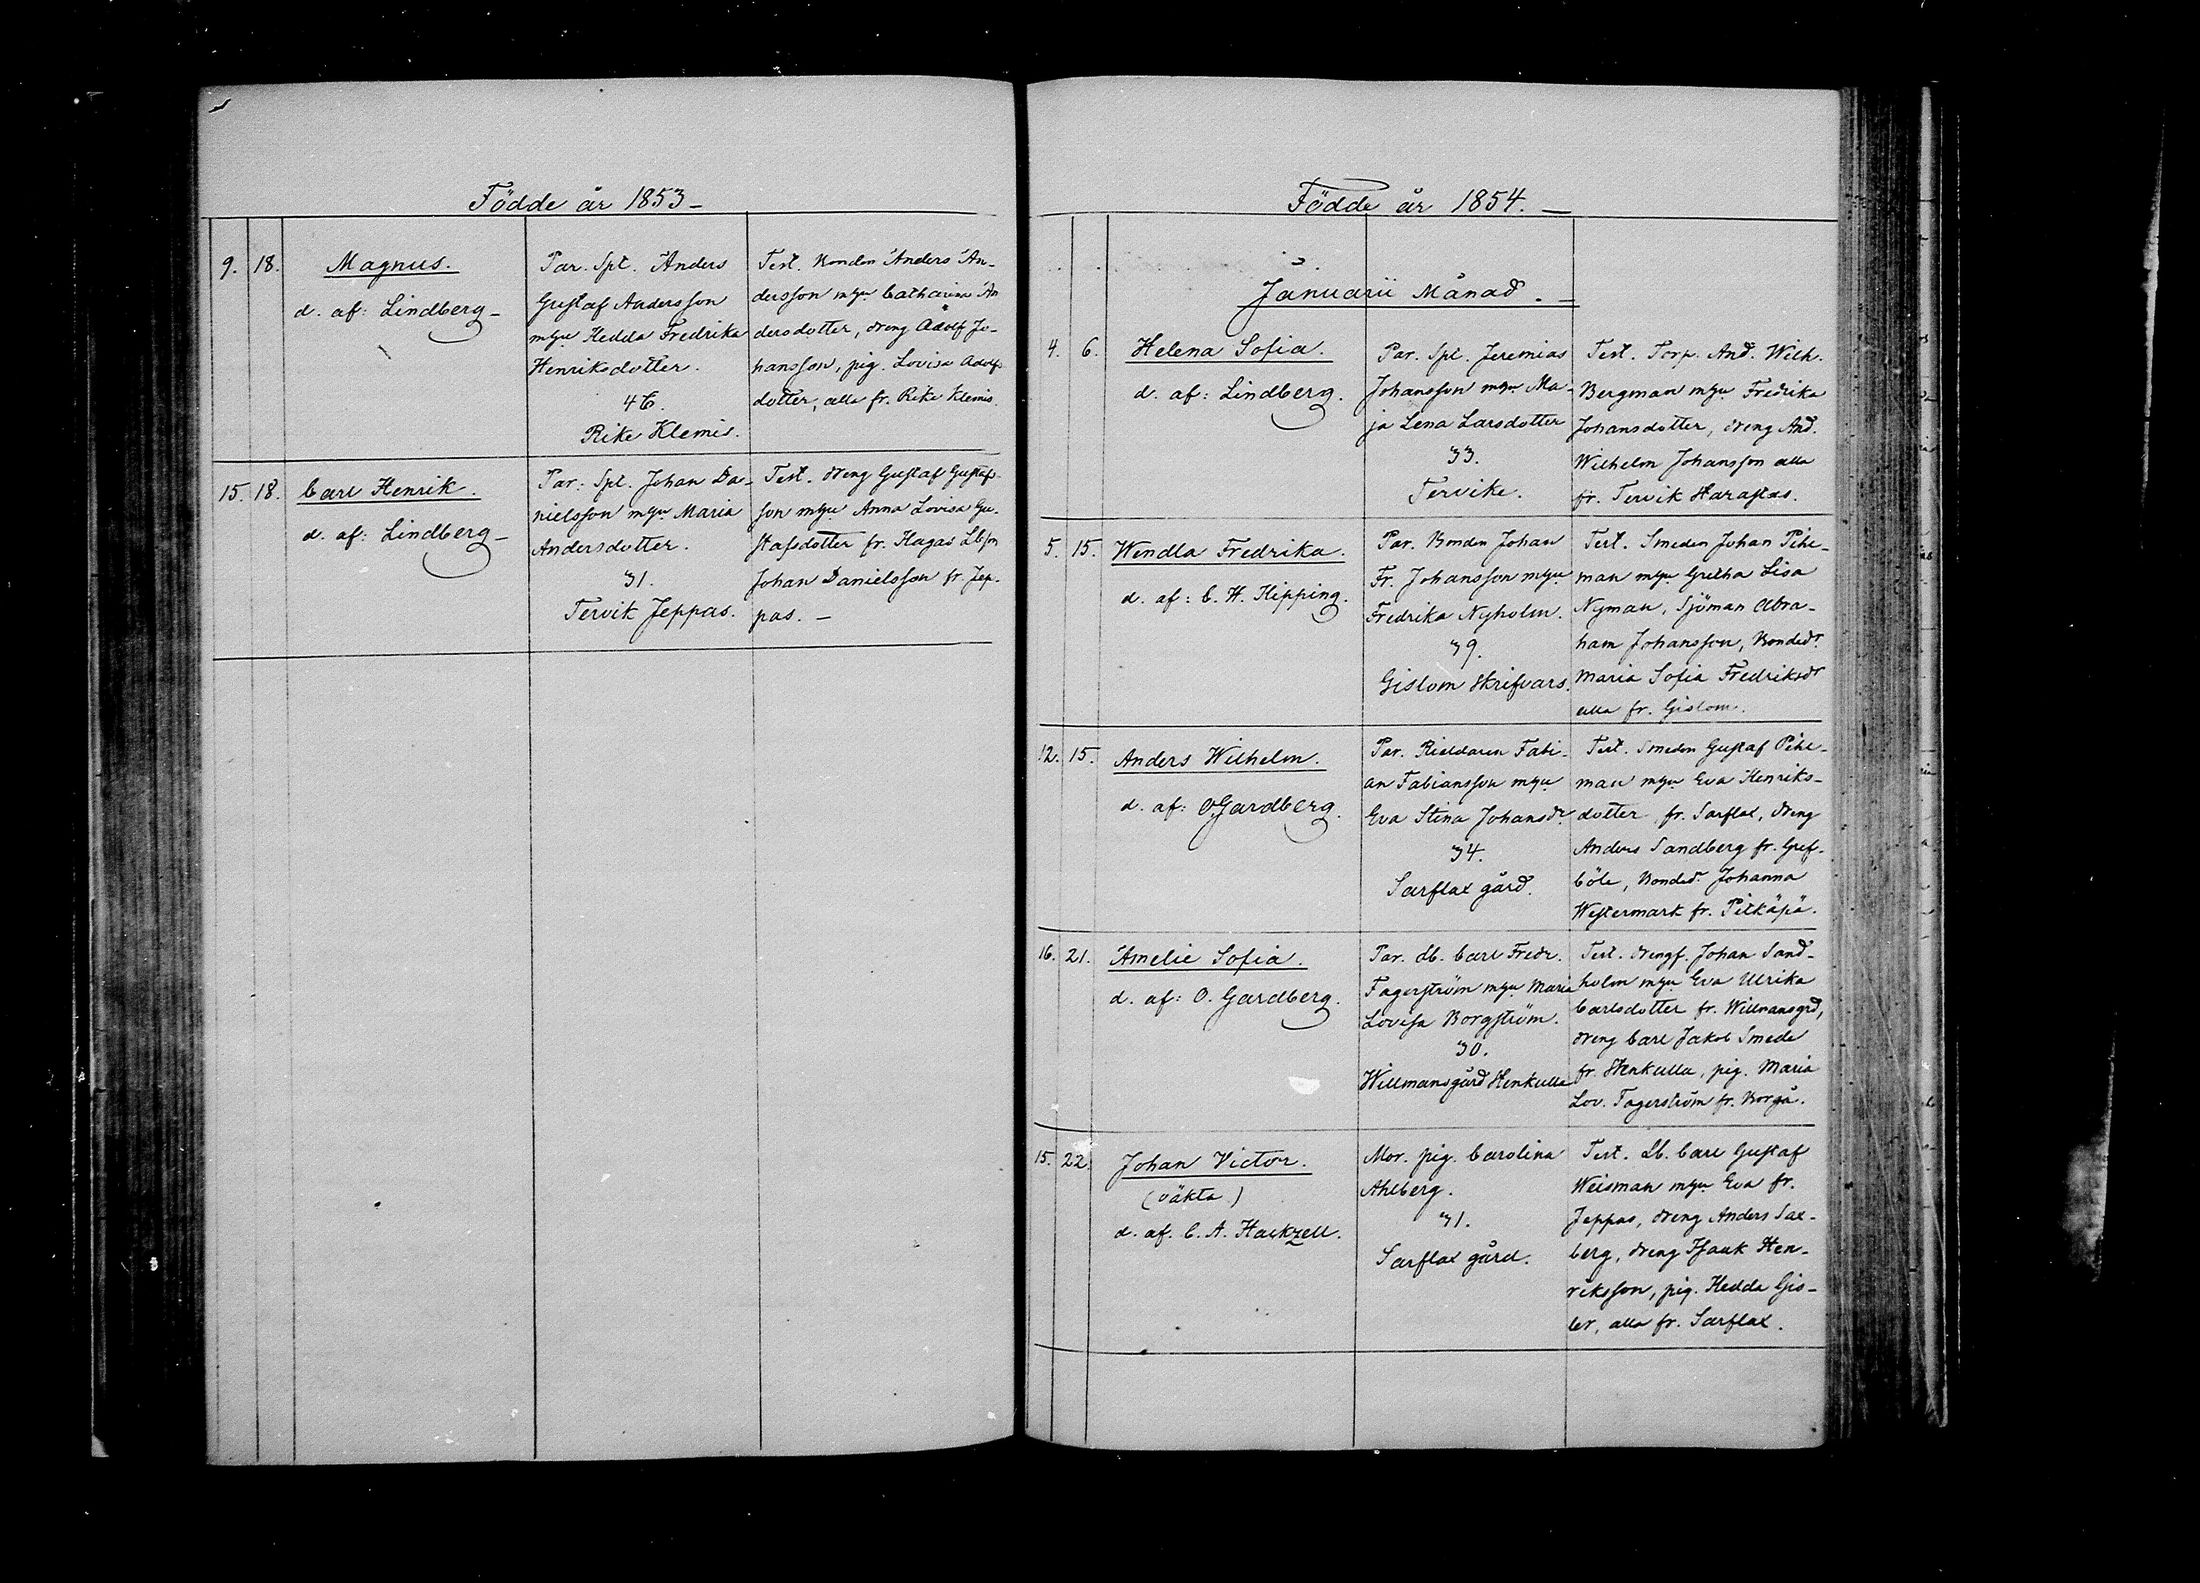 Födde år 1853 –
9. 18. Magnus.
d. af: Lindberg –
Par. Spl. Anders
Gustaf Andersson
mhu Hedda Fredrika
Henriksdotter.
46.
Rike Klemis.
Test. Bonden Anders An-
dersson mhu Catharina An
dersdotter, dreng Adolf Jo-
hansson, pig. Lovisa Adolfs
dotter, alla fr. Rike Klemis.
15. 18. Carl Henrik.
d. af: Lindberg –
Par: Spl. Johan Da-
nielsson mhu Maria
Andersdotter.
31.
Tervik Jeppas.
Test. dreng Gustaf Gustafs-
son mhu Anna Lovisa Gu-
stafsdotter fr. Hagas Lbsn
Johan Danielsson fr. Jep-
pas. –
Födde år 1854. –
Januarii Månad. –
4. 6. Helena Sofia.
d. af: Lindberg.
Par. Spl. Jeremias
Johansson mhu Ma-
ja Lena Larsdotter
33.
Tervike.
Test. Torp. And. Wilh.
Bergman mhu Fredrika
Johansdotter, dreng And.
Wilhelm Johansson alla
fr. Tervik Harastas.
5. 15. Wendla Fredrika.
d. af: C. H. Hipping.
Par. Bonden Johan
Fr. Johansson mhu
Fredrika Nyholm.
39.
Gislom Skrifvars.
Test. Smeden Johan Pihl-
man mhu Gretha Lisa
Nyman, Sjöman Abra-
ham Johansson, Bondedr
Maria Sofia Fredriksdr
alla fr. Gislom.
12. 15. Anders Wilhelm.
d. af: O. Gardberg.
Par. Rieldaren Fabi-
an Fabiansson mhu
Eva Stina Johansdr.
34.
Sarflax gård.
Test. Smeden Gustaf Pihl-
man mhu Eva Henriks-
dotter, fr. Sarflax, dreng
Anders Sandberg fr. Gref-
böle, Bondedr Johanna
Westermark fr. Pitkäpä.
16. 21. Amelie Sofia.
d. af: O. Gardberg.
Par. Lb. Carl Fredr.
Fagerström mhu Maria
Lovisa Borgström.
30.
Willmansgård Stenkulla
Test. drengf. Johan Sand-
holm mhu Eva Ulrika
Carlsdotter fr. Willmansgrd,
dreng Carl Jakob Smeds
fr. Stenkulla, pig. Maria
Lov. Fagerström fr. Borgå.
15. 22. Johan Victor.
(oäkta)
d. af. C. A. Hackzell.
Mor. pig. Carolina
Ahlberg.
31.
Sarflax gård.
Test. Lb. Carl Gustaf
Weisman mhu Eva fr.
Jeppas, dreng Anders Sax-
berg, dreng Isaak Hen-
riksson, pig. Hedda Gis-
ler, alla fr. Sarflax.